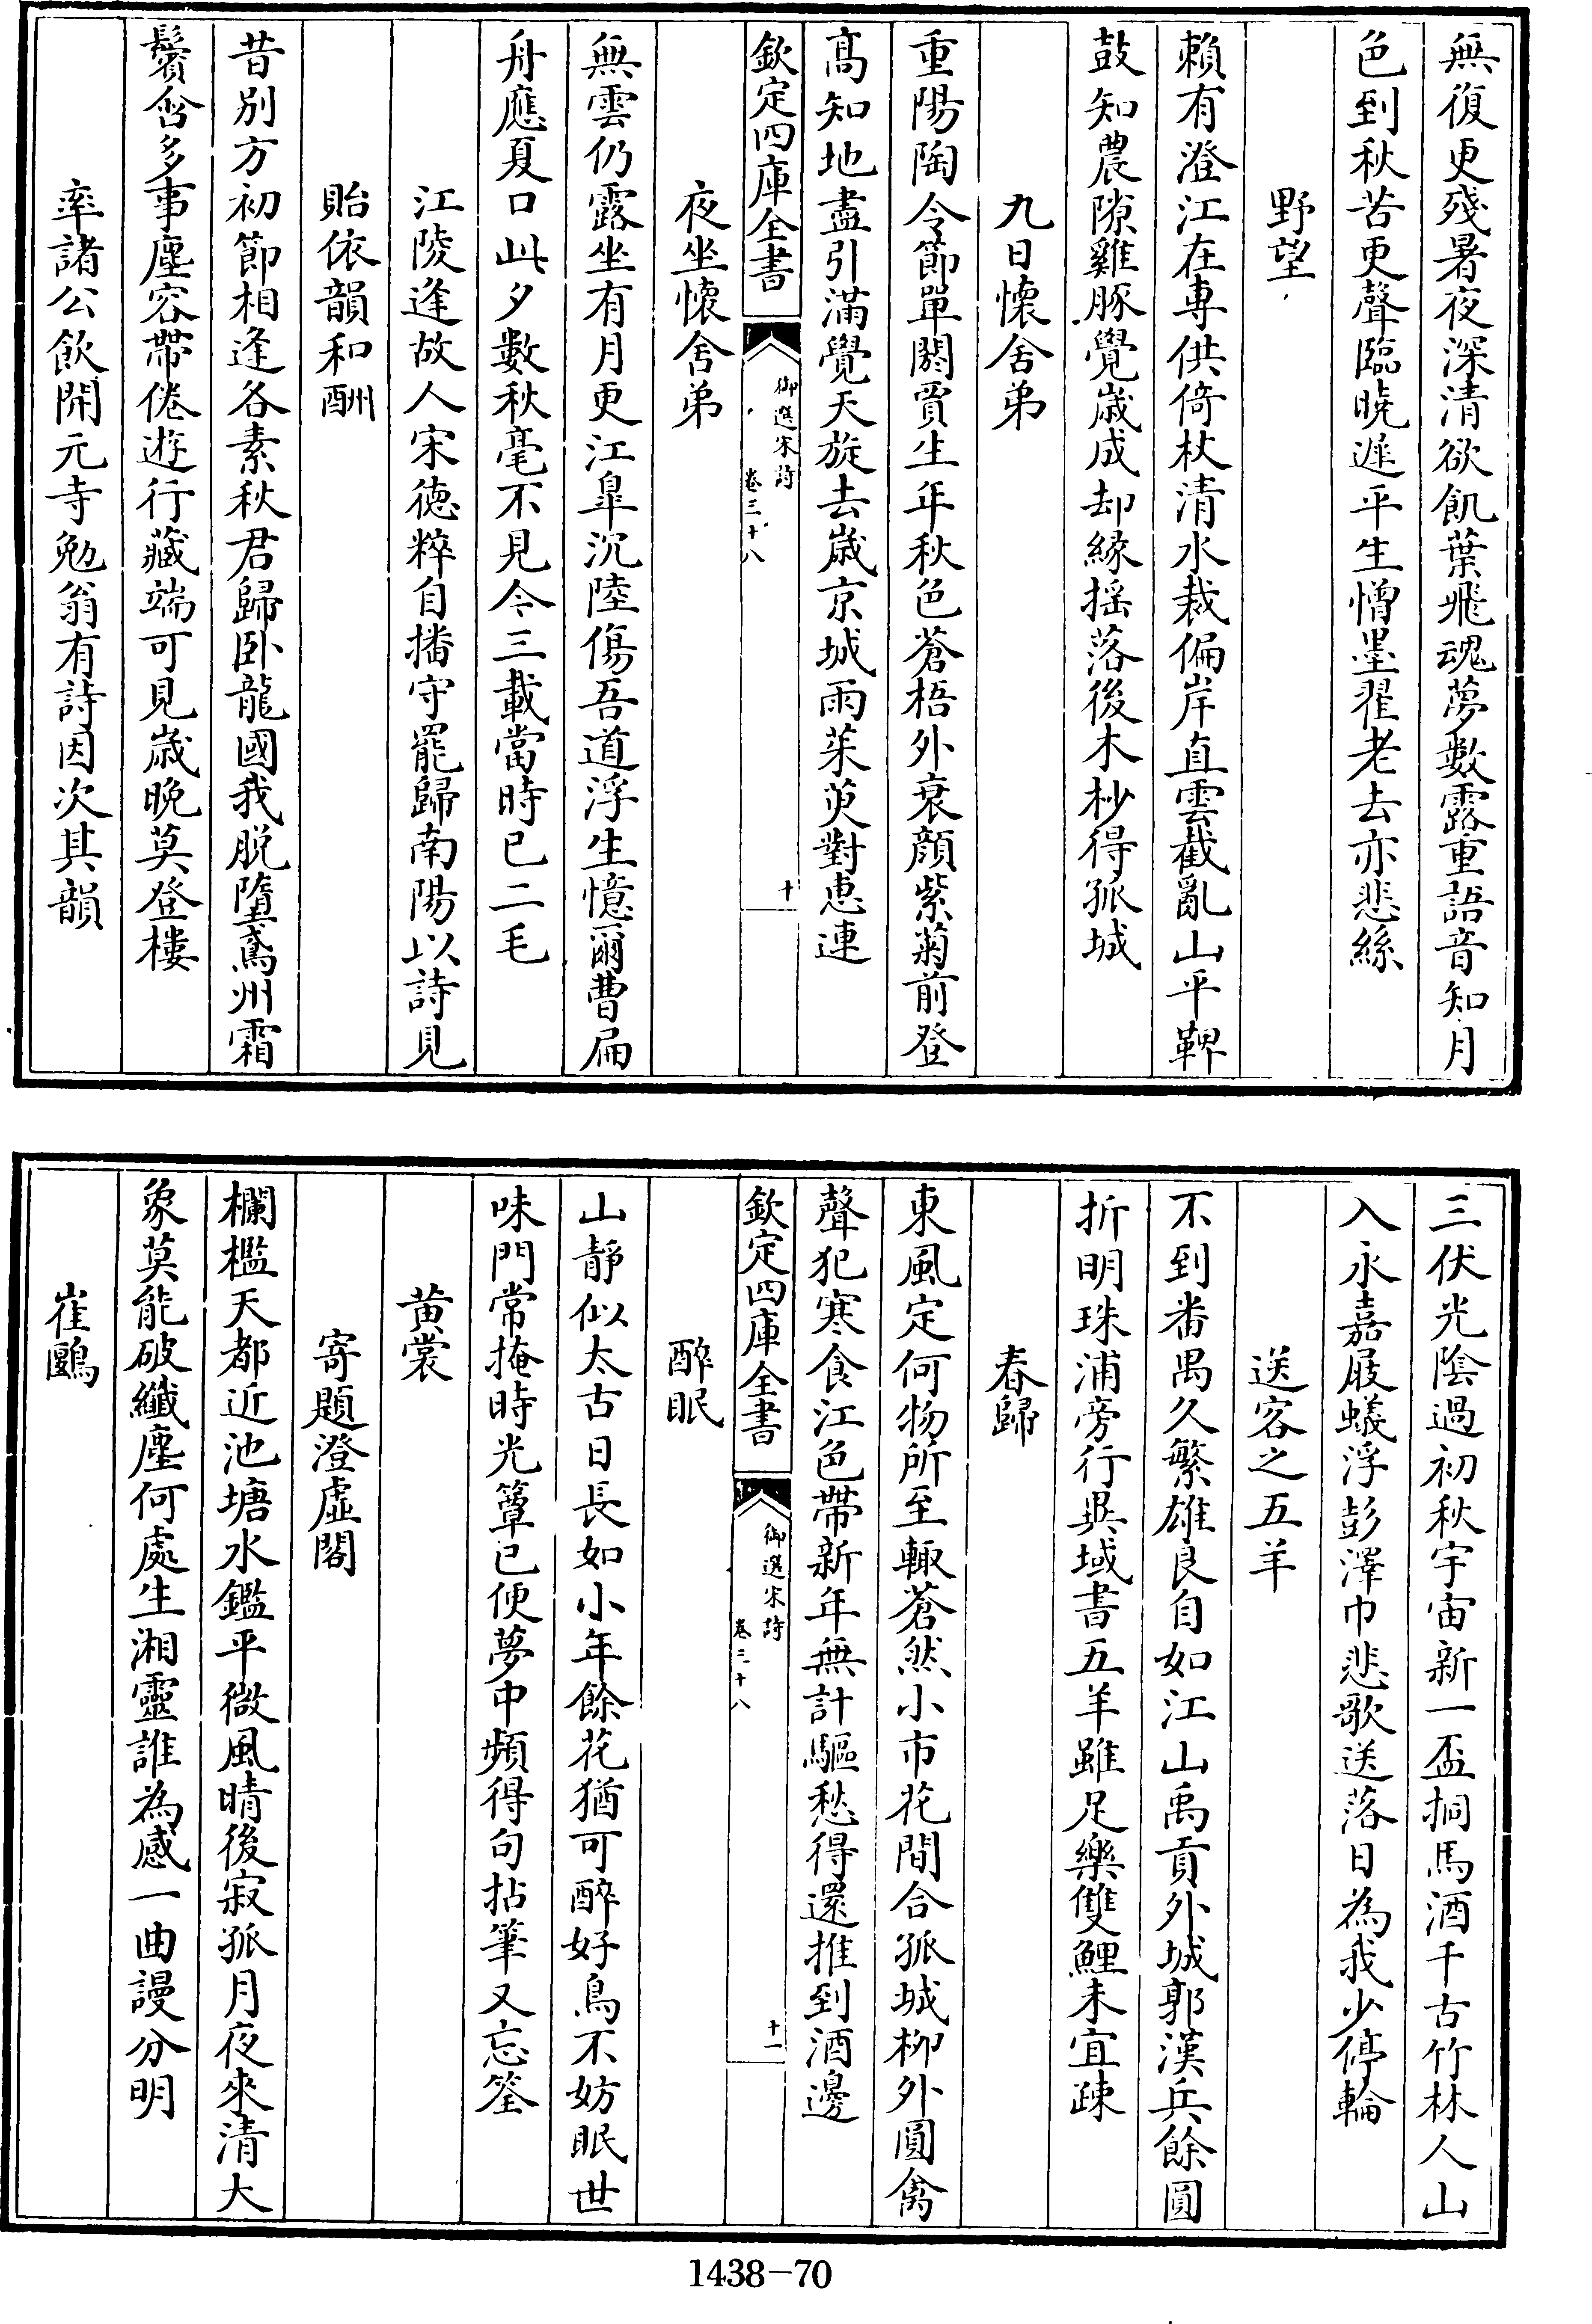 無復更殘暑夜深清欲飢葉飛魂夢數露重語音知月
色到秋苦更聲臨曉遲平生憎墨翟老去亦悲絲
野望
賴有澄江在專供倚杖清水裁偏岸直雲截亂山平鞞
鼓知農隙雞豚覺歲成却緣揺落後木杪得孤城
九日懐舍弟
重陽陶令節單閼賈生年秋色蒼梧外衰顔紫菊前登
髙知地盡引滿覺天旋去歲京城雨茱萸對恵連
欽定四庫全書
御選宋詩
卷三十八
十
夜坐懐舍弟
無雲仍露坐有月更江臯沉陸傷吾道浮生憶爾曹扁
舟應夏口此夕數秋毫不見今三載當時已二毛
江陵逢故人宋徳粹自播守罷歸南陽以詩見
貽依韻和酬
昔别方初節相逢各素秋君歸卧龍國我脱墮鳶州霜
鬢含多事塵容帶倦遊行藏端可見歲晩莫登樓
率諸公飲開元寺勉翁有詩因次其韻
三伏光陰過初秋宇宙新一盃挏馬酒千古竹林人山
入永嘉屐蟻浮彭澤巾悲歌送落日為我少停輪
送客之五羊
不到番禺久繁雄良自如江山禹貢外城郭漢兵餘圓
折明珠浦旁行異域書五羊雖足樂雙鯉未宜疎
春歸
東風定何物所至輙蒼然小市花間合孤城柳外圓禽
聲犯寒食江色帶新年無計驅愁得還推到酒邊
欽定四庫全書
御選宋詩
卷三十八
十一
醉眠
山靜似太古日長如小年餘花猶可醉好鳥不妨眠世
味門常掩時光簟已便夢中頻得句拈筆又忘筌
黄裳
寄題澄虛閣
欄檻天都近池塘水鑑平微風晴後寂孤月夜來清大
象莫能破纖塵何處生湘靈誰為感一曲謾分明
崔鶠
1438-70